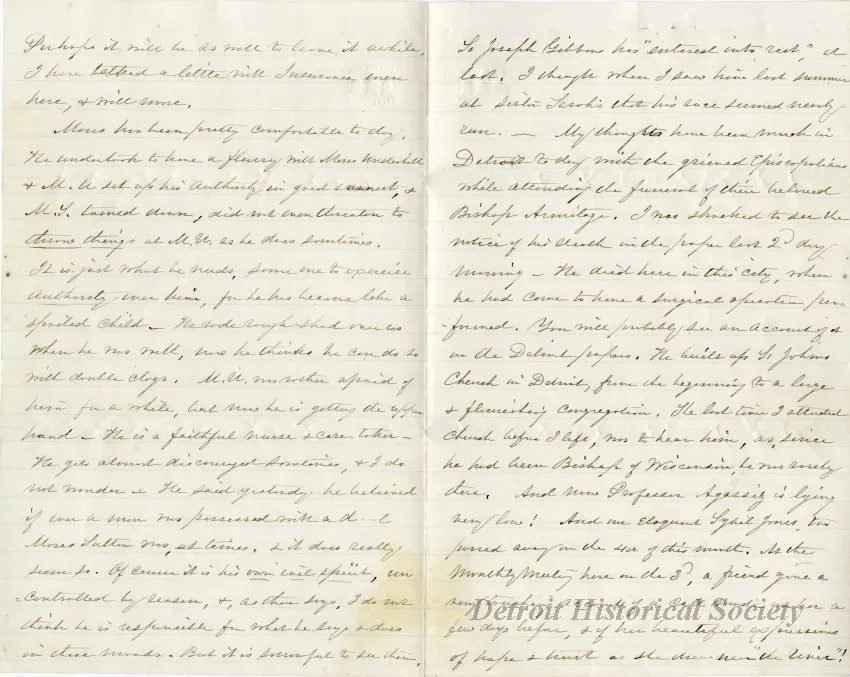 Perhaps it will be as well to leave it awhile.
I have talked a little with Insurance men
here, & will more.
Moses has been pretty comfortable to day.
He undertook to have a flurry with Moses Underhill
& M. U set up his authority in good earnest, &
M. S. tamed down, did not even threaten to
throw things at M. U. as he does sometimes.
It is just what he needs, some one to exercise
authority over him, for he has become like a
spoiled child – He rode rough-shod over us
when he was well, now he thinks he can do so
with double clogs. M. U. was rather afraid of
him for a while, but now he is getting the upper
hand – He is a faithful nurse & care taker –
He gets almost discouraged sometimes, & I do
not wonder – He said yesterday he believed
if ever a man was possessed with a d--l
Moses Sutton was, at times. & it does really
seem so. Of course it is his own evil spirit, un
-controlled by reason, &, as thou says, I do not
think he is responsible for what he says & does
in these moods. But it is sorrowful to see them,
So Joseph Gibbons has "entered into rest," at
last. I thought when I saw him last summer
at sister Sarah's that his race seemed nearly
run. – My thoughts have been much in
Detroit to day with the grieved Episcopalians
while attending the funeral of their beloved
Bishop Armitage. I was shocked to see the
notice of his death in the paper last 2d day
morning – He died here in this city, where
he had come to have a surgical operation per
-formed. You will probably see an account of it
in the Detroit papers. He built up St Johns
Church in Detroit, from the beginning to a large
& flourishing congregation. The last time I attended
church before I left, was to hear him, as, since
he had been Bishop of Wisconsin, he was rarely
there. And now Professor Agassiz is lying
very low! And our Eloquent Sybil Jones, has
passed away on the of this month. At the
Monthly Meeting here on the 3d, a friend gave a
very her a
few days before, & of her beautiful expressions
of hope & trust as she drew near "the river"!
Detroit Historical Society